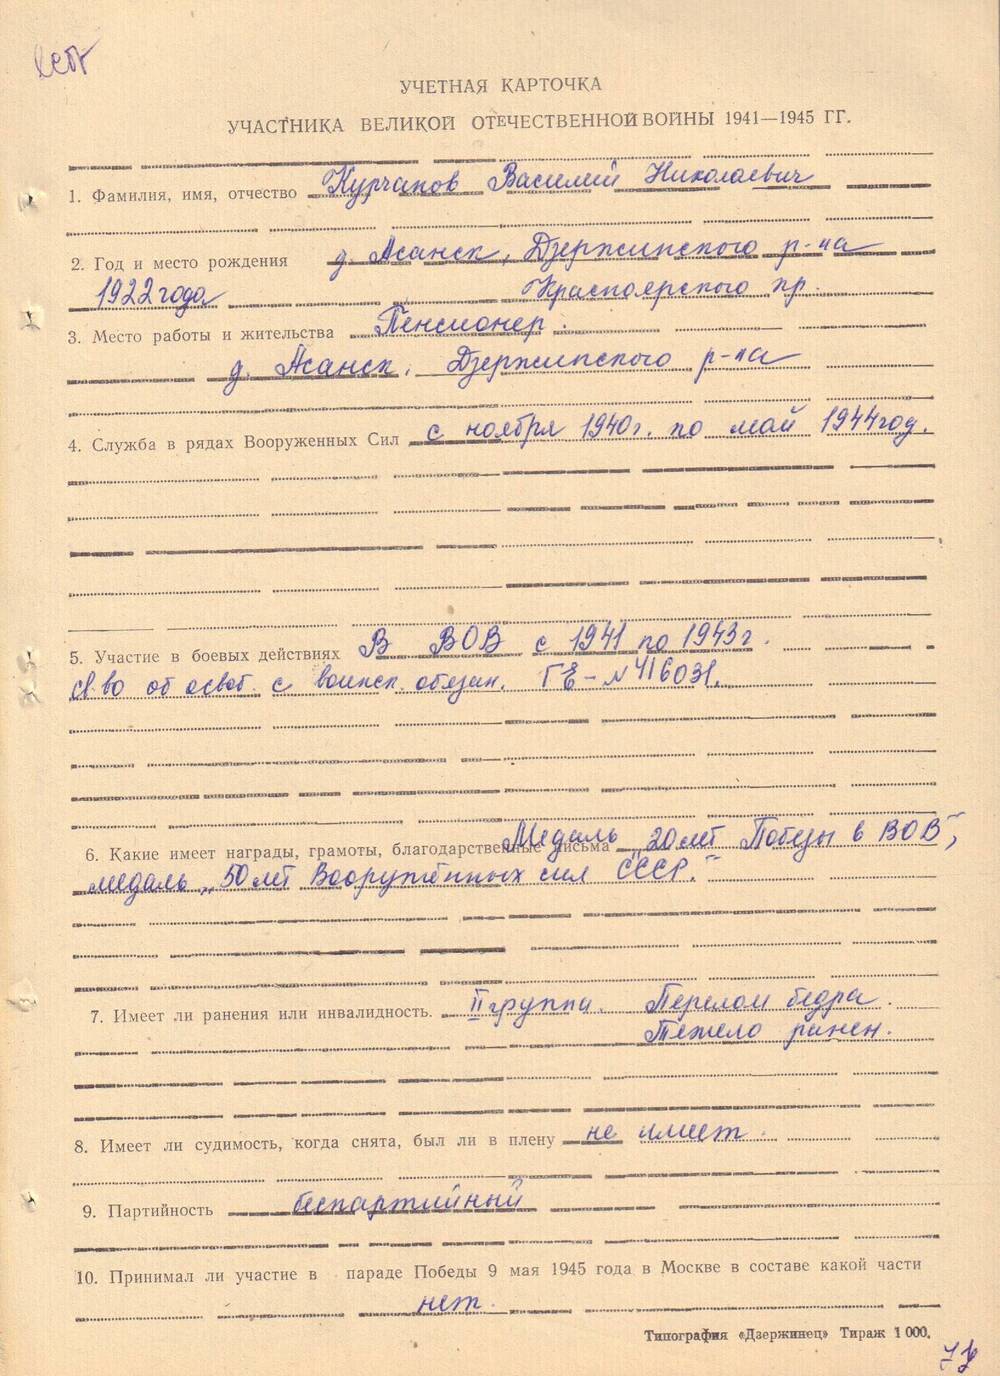 УЧЕТНАЯ КАРТОЧКА
УЧАСТНИКА ВЕЛИКОЙ ОТЕЧЕСТВЕННОЙ ВОЙНЫ 1941—1945 ГГ.
1. Фамилия, имя, отчество Курчанов Василий Николаевич
2. Год и место рождения д. Асанск, Дзержинского р-на
1922 года Красноярского кр.
3. Место работы и жительства Пенсионер.
д. Асанск, Дзержинского р-на
4. Служба в рядах Вооруженных Сил с ноября 1940г. по май 1944год.
5. Участие в боевых действиях В ВОВ с 1941 по 1943г.
св-во об освоб. с воинск. обязан. ГЕ-№416031.
6. Какие имеет награды, грамоты, благодарственные письма Медаль „20 лет Победы в ВОВ",
медаль „50 лет Вооружённых сил СССР."
7. Имеет ли ранения или инвалидность. II группа. Перелом бедра.
Тяжело ранен.
8. Имеет ли судимость, когда снята, был ли в плену не имеет.
9. Партийность беспартийный
10. Принимал ли участие в параде Победы 9 мая 1945 года в Москве в составе какой части
нет.
Типография «Дзержинец» Тираж 1 000.